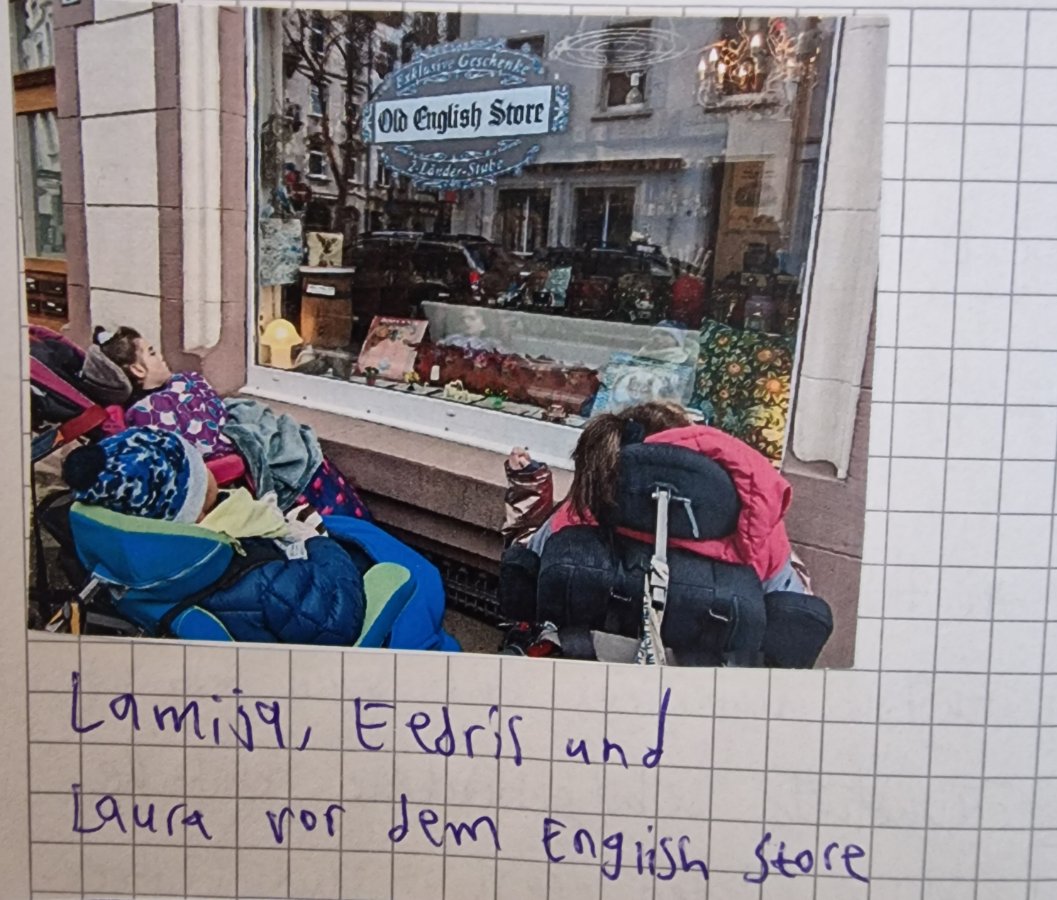 Exklusive Geschenke
Old English Store
2-Länder-Stube
Lamija, Eedris und
Laura vor dem English Store